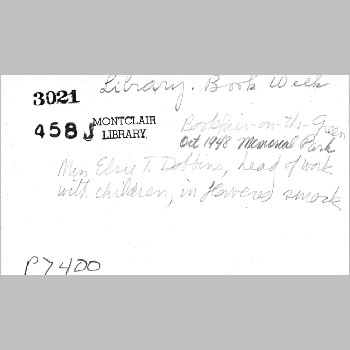 Library. Book Week
3021
458J MONTCLAIR
LIBRARY.
Bookfair-on-the-Green
Oct 1948 Memorial Park
Miss Elsie T. Dobbins, head of work
with children, in flowered smock
P7400